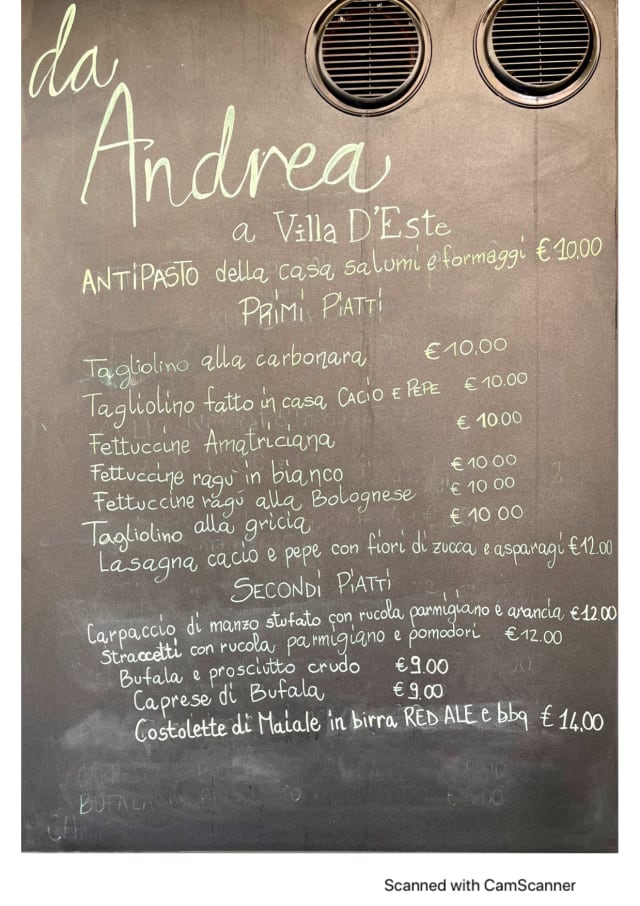 da
Andrea
a Villa D'Este
ANTIPASTO della casa salumi e formaggi € 10,00
PRIMI PIATTI
Tagliolino alla carbonara € 10,00
Tagliolino fatto in casa CACIO E PEPE € 10.00
Fettuccine Amatriciana € 10.00
Fettuccine ragu' in bianco € 10 00
Fettuccine ragú alla Bolognese € 10 00
Tagliolino alla gricia € 10 00
Lasagna cacio e pepe con fiori di zucca e asparagi €12.00
SECONDI PIATTI
Carpaccio di manzo stufato con rucola parmigiano e arancia €12.00
Straccetti con rucola parmigiano e pomodori €12.00
Bufala e prosciutto crudo €9.00
Caprese di Bufala €9,00
Costolette di Maiale in birra RED ALE e bbq € 14,00
BUFALA
Scanned with CamScanner